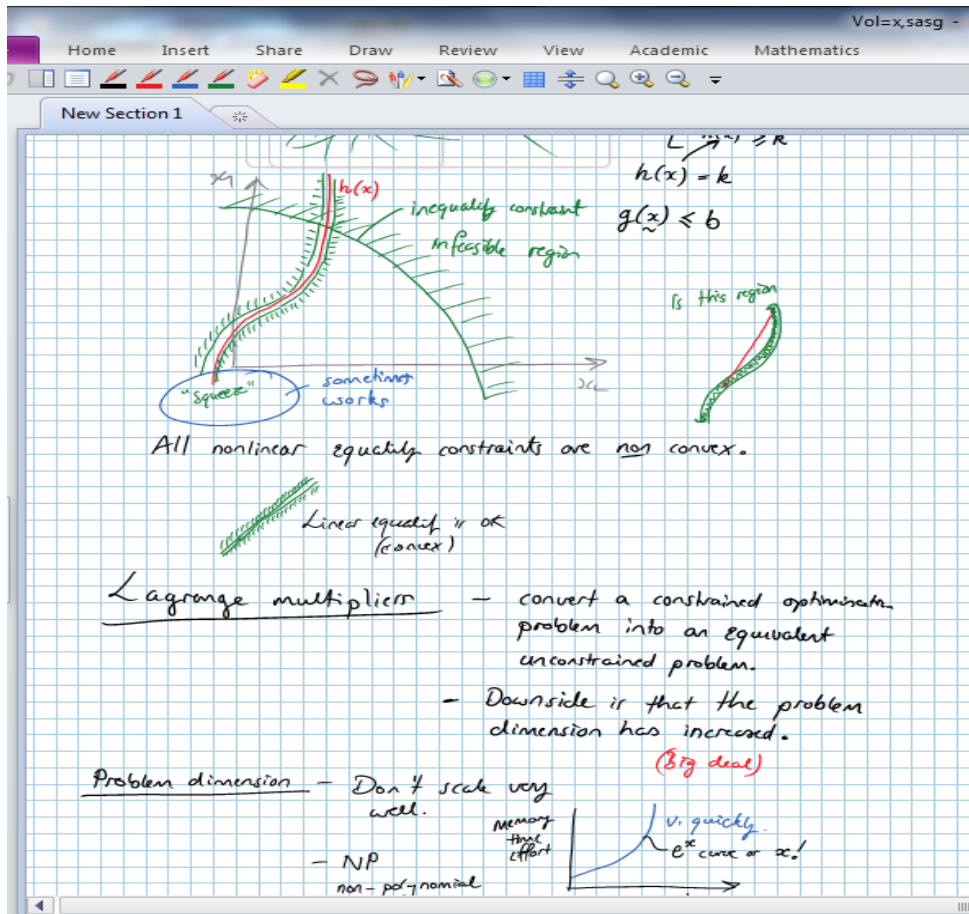 Vol=x,sasg -
Home Insert Share Draw Review View Academic Mathematics
New Section 1
≥ k
h(x) = k
g(x) ≤ b
x1
h(x)
inequality constraint
infeasible region
Is this region
"squeeze"
sometimes
works
All nonlinear equality constraints are non convex.
Linear equality is OK
(convex)
Lagrange multipliers – convert a constrained
problem into an equivalent
unconstrained problem.
– Downside is that the problem
dimension has increased.
(Big deal)
Problem dimension – Don't scale very
well.
Memory
time
effort
v. quickly.
e^x curve or x!
– NP
non-polynomial